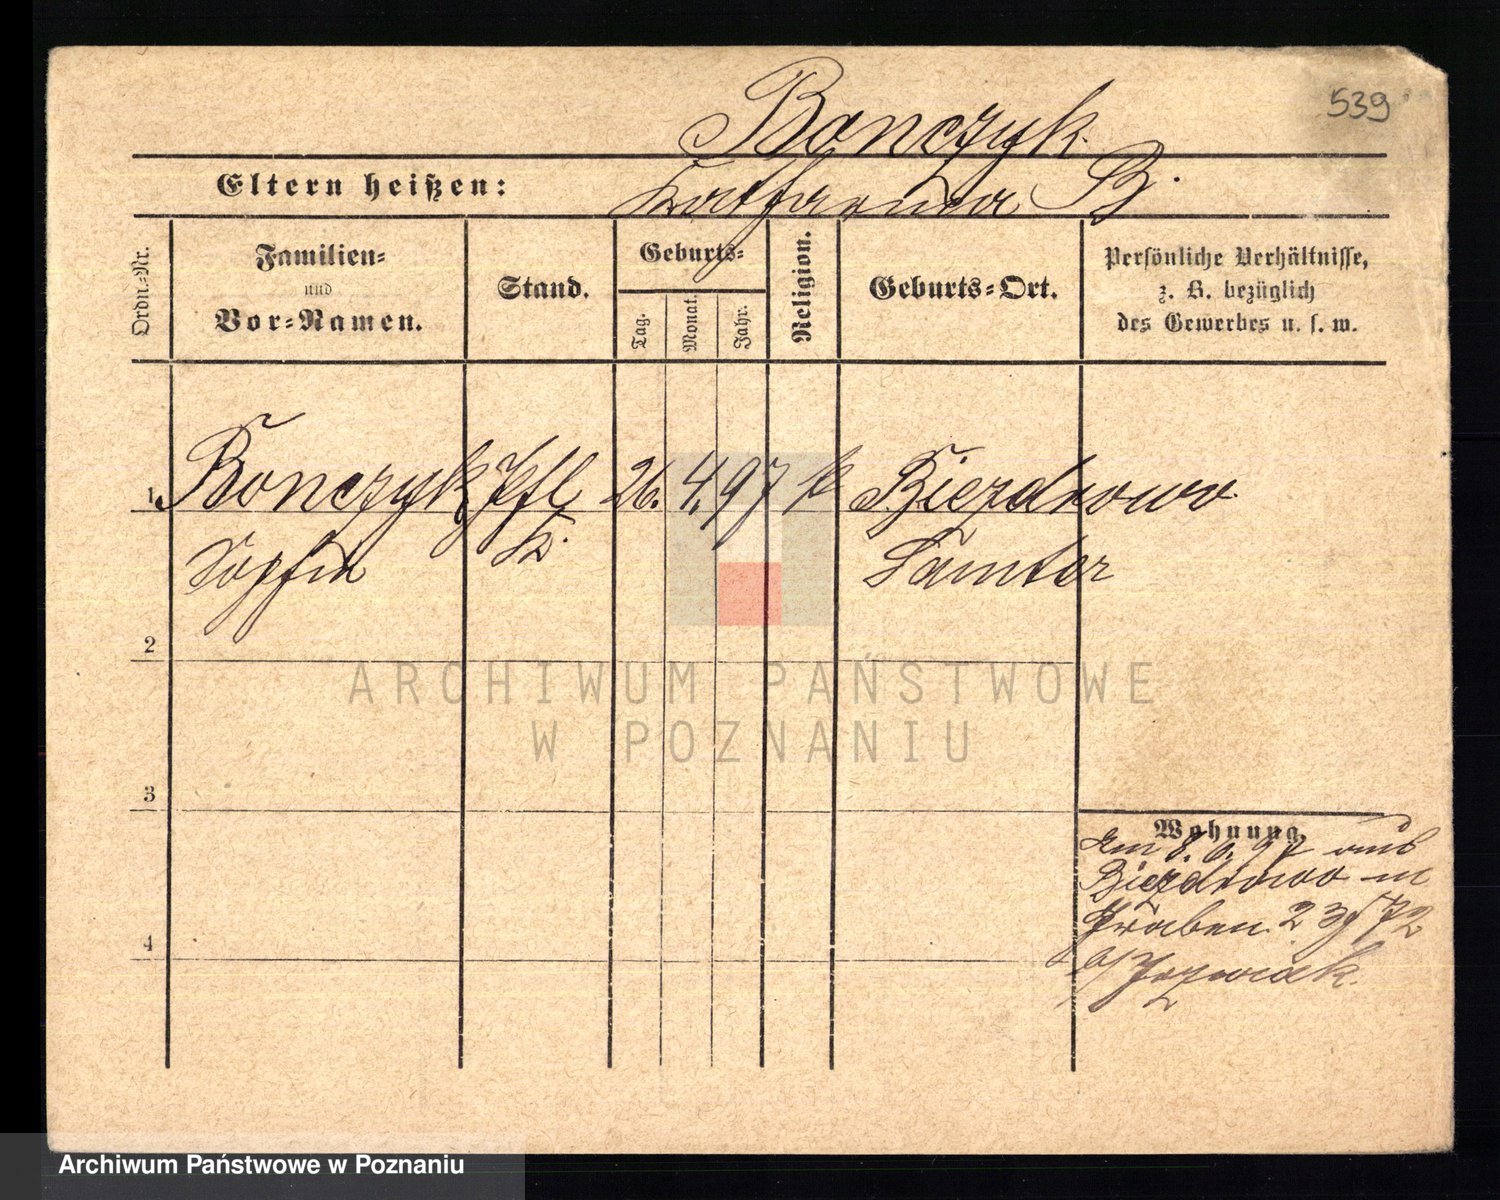 539
Bonczyk
Eltern heißen: Katharina B.
Ordn.-Nr.
Familien-
und
Vor-Namen.
Stand.
Geburts-
Tag.
Monat.
Jahr.
Religion.
Geburts-Ort.
Persönliche Verhältnisse,
z. B. bezüglich
des Gewerbes u. s. w.
1 Bonczyk Pfl 26. 4. 97 k Biezdrowo
Sophia K. Samter
2
3
4
Wohnung.
Am 8. 6. 97 aus
Biezdrowo in
Graben 23/72
b/Jozwiak.
ARCHIWUM PAŃSTWOWE
W POZNANIU
Archiwum Państwowe w Poznaniu